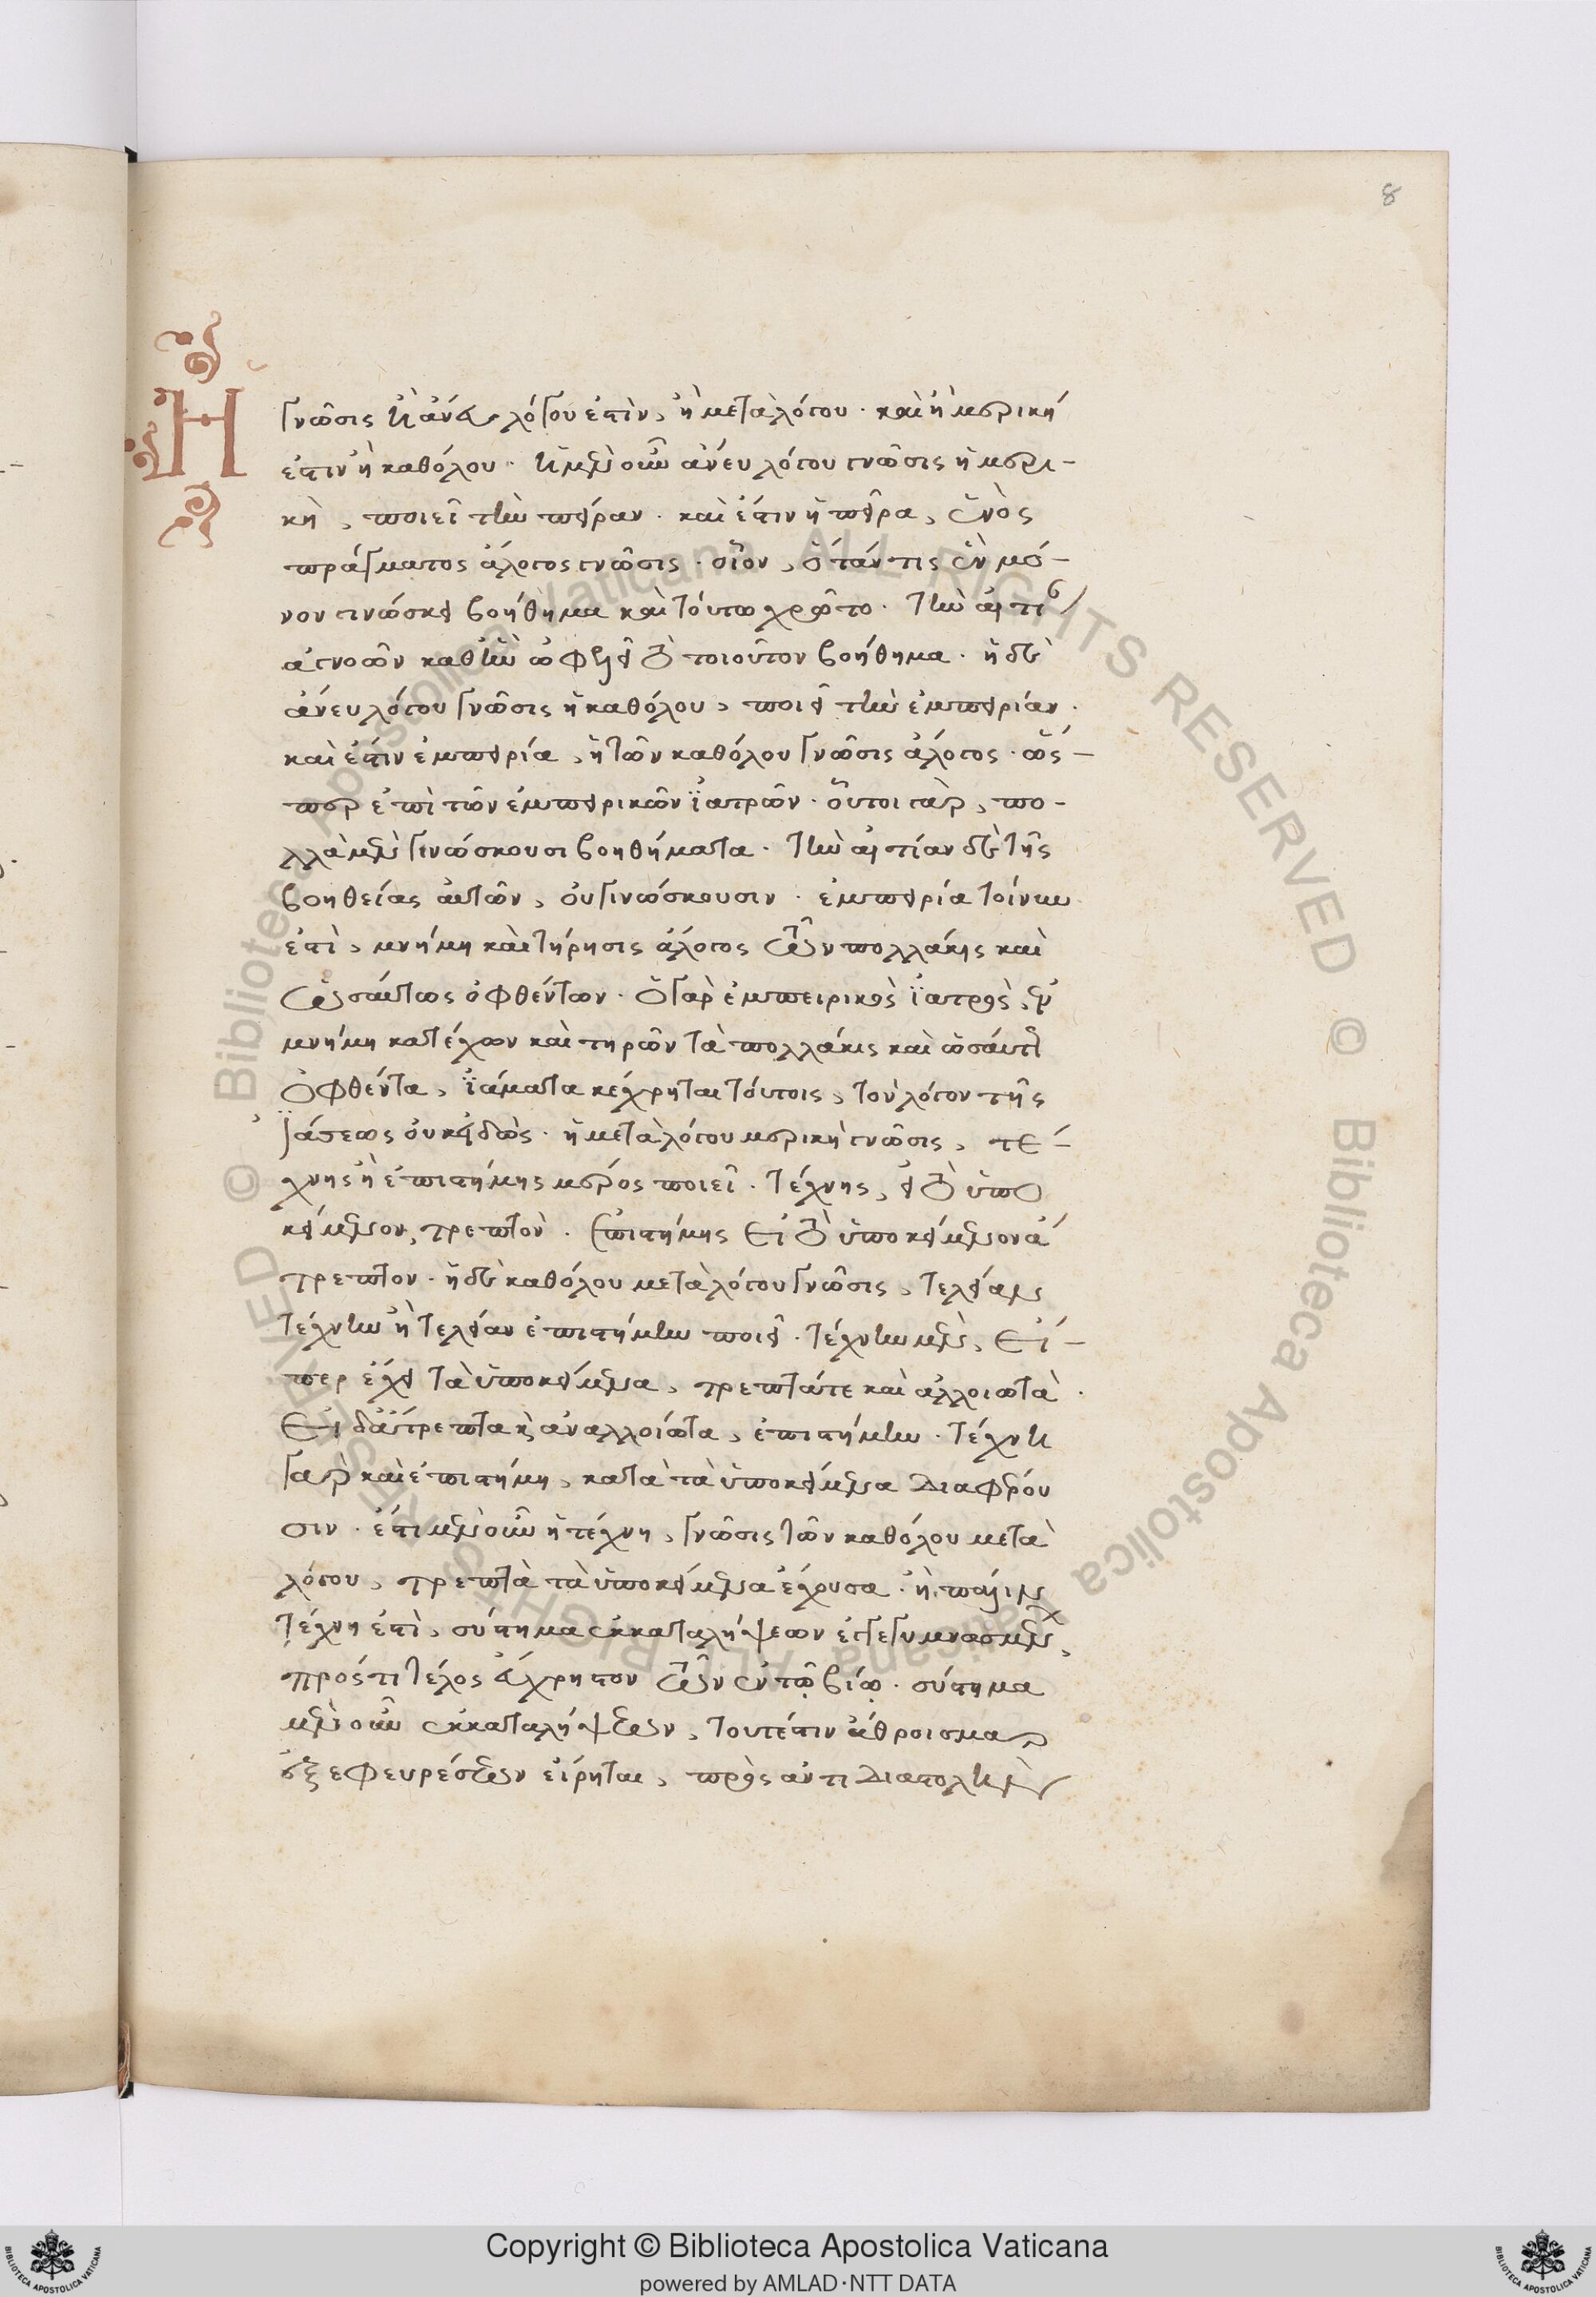 8
Ἡ
γνῶσις ἢ ἄνευ λόγου ἐστὶν, ἢ μετὰ λόγου · καὶ ἢ μερική
ἐστιν ἢ καθόλου · ἡ μὲν οὖν ἄνευ λόγου γνῶσις ἡ μερι-
κὴ, ποιεῖ τὴν πεῖραν · καὶ ἔστιν ἡ πεῖρα, ἑνὸς
πράγματος ἄλογος γνῶσις · οἷον, ὅτάν τις ἓν μό-
νον γινώσκει βοήθημα καὶ τούτω χρῷτο · τὴν αἰτί
ἀγνοῶν καθ' ἣν ὠφελεῖ τὸ τοιοῦτον βοήθημα · ἡ δὲ
ἄνευ λόγου γνῶσις ἡ καθόλου, ποιεῖ τὴν ἐμπειρίαν ·
καὶ ἐστὶν ἐμπειρία, ἡ τῶν καθόλου γνῶσις ἄλογος · ὥς-
περ ἐπὶ τῶν ἐμπειρικῶν ἰατρῶν · οὗτοι γὰρ, πο-
λλὰ μὲν γινώσκουσι βοηθήματα · τὴν αἰτίαν δὲ τῆς
βοηθείας αὐτῶν, οὐ γινώσκουσιν · ἐμπειρία τοίνυν
ἐστὶ, μνήμη καὶ τήρησις ἄλογος τῶν πολλάκις καὶ
ὡσαύτως ὀφθέντων · ὁ γὰρ ἐμπειρικὸς ἰατρὸς, ἐν
μνήμη κατέχων καὶ τηρῶν τὰ πολλάκις καὶ ὡσαύτως
ὀφθέντα, ἰάματα κέχρηται τούτοις, τὸν λόγον τῆς
ἰάσεως οὐκ εἰδὼς · ἡ μετὰ λόγου μερικὴ γνῶσις, τέ-
χνης ἢ ἐπιστήμης μέρος ποιεῖ · τέχνης, εἰ τὸ ὑπο
κείμενον, τρεπτὸν · ἐπιστήμης εἰ τὸ ὑποκείμενον ἄ
τρεπτον · ἡ δὲ καθόλου μετὰ λόγου γνῶσις, τελείαν
τέχνην ἢ τελείαν ἐπιστήμην ποιεῖ · τέχνην μὲν, εἴ-
περ ἔχει τὰ ὑποκείμενα, τρεπτά τε καὶ ἀλλοιωτὰ ·
εἰ δ' ἄτρεπτα καὶ ἀναλλοίωτα, ἐπιστήμην · τέχνη
γὰρ καὶ ἐπιστήμη, κατὰ τὰ ὑποκείμενα διαφέρου
σιν · ἔστι μὲν οὖν ἡ τέχνη, γνῶσις τῶν καθόλου μετὰ
λόγου, τρεπτὰ τὰ ὑποκείμενα ἔχουσα · ἢ πάλιν
τέχνη ἐστὶ, σύστημα ἐκ καταλήψεων ἐγγεγυμνασμένων,
πρός τι τέλος εὔχρηστον τῶν ἐν τῷ βίῳ · σύστημα
μὲν οὖν ἐκ καταλήψεων, τουτέστιν ἄθροισμα
ἐξ ἐφευρέσεων εἴρηται, πρὸς ἀντιδιαστολὴν